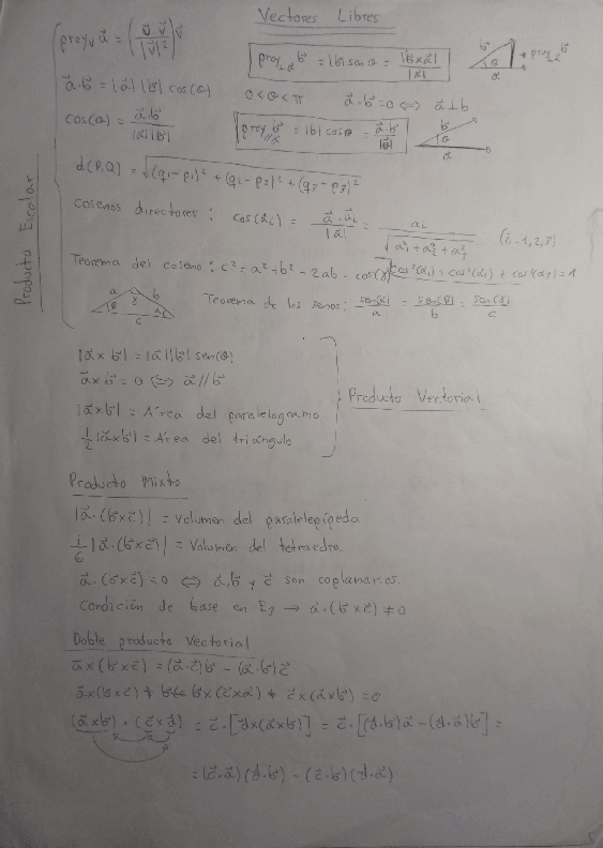 Vectores Libres
Producto Escalar
proy_v u⃗ = (u⃗·v⃗ / |v⃗|²) v⃗
proy_⊥a⃗ b⃗ = |b| sen θ = |b⃗×a⃗| / |a⃗|
b⃗ θ a⃗ proy_⊥a⃗ b⃗
a⃗·b⃗ = |a⃗| |b⃗| cos(θ) 0<θ<π a⃗·b⃗=0 ⟺ a⃗⊥b⃗
cos(θ) = a⃗·b⃗ / |a⃗||b⃗|
proy_//a⃗ b⃗ = |b| cos θ = a⃗·b⃗ / |a⃗|
b⃗ θ a⃗
d(P,Q) = √((q₁-p₁)² + (q₂-p₂)² + (q₃-p₃)²)
Cosenos directores: cos(αᵢ) = a⃗·u⃗ᵢ / |a⃗| = aᵢ / √(a₁²+a₂²+a₃²) (i=1,2,3)
Teorema del coseno: c² = a² + b² - 2ab·cos(γ) cos²(α₁)+cos²(α₂)+cos²(α₃)=1
a b γ β α c
Teorema de los senos: sen(α)/a = sen(β)/b = sen(γ)/c
|a⃗×b⃗| = |a⃗||b⃗| sen(θ)
a⃗×b⃗=0 ⟺ a⃗//b⃗
Producto Vectorial
|a⃗×b⃗| = Área del paralelogramo
½|a⃗×b⃗| = Área del triángulo
Producto Mixto
|a⃗·(b⃗×c⃗)| = Volumen del paralelepípedo
1/6 |a⃗·(b⃗×c⃗)| = Volumen del tetraedro.
a⃗·(b⃗×c⃗)=0 ⟺ a⃗,b⃗ y c⃗ son coplanarios.
Condición de base en E₃ → a⃗·(b⃗×c⃗) ≠ 0
Doble producto Vectorial
a⃗×(b⃗×c⃗) = (a⃗·c⃗)b⃗ - (a⃗·b⃗)c⃗
a⃗×(b⃗×c⃗) + b⃗×(c⃗×a⃗) + c⃗×(a⃗×b⃗) = 0
(a⃗×b⃗)·(c⃗×d⃗) = c⃗·[d⃗×(a⃗×b⃗)] = c⃗·[(d⃗·b⃗)a⃗-(d⃗·a⃗)b⃗] =
= (c⃗·a⃗)(d⃗·b⃗) - (c⃗·b⃗)(d⃗·a⃗)